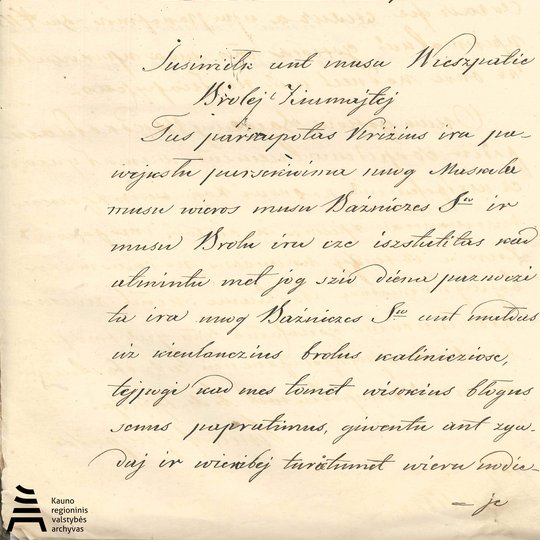 Susimilk ant musu Wieszpatie
Brolej Ziumajtej
Tus parkaupotas Kriżius ira pa-
wejkslu persekiwima nuog Maskalu
musu wieros musu Bażniczes S:tos ir
musu Brolu ira cze isztatitas kad
atmintu met jog szio diena paznoczi
ta ira nuog Bażniczes S:tos ant maldas
uż kientanczius brolus kaliniciose,
tejpogi kad mes tomet wisokius blogus
senus papratimus, giwentu ant zga-
daj ir wienibej turetumet wiera nodie-
= je
Kauno
regioninis
valstybės
archyvas